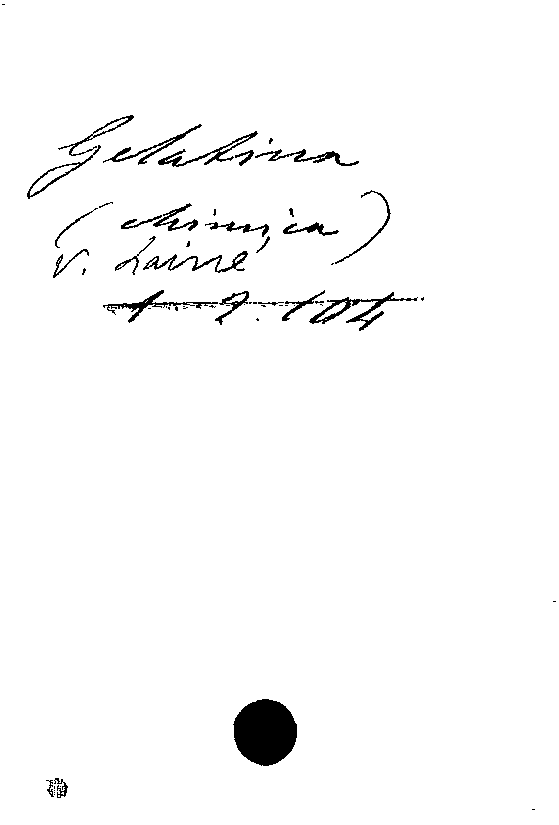 Gelatina
(chimica)
V. Lainé
1 2. 104